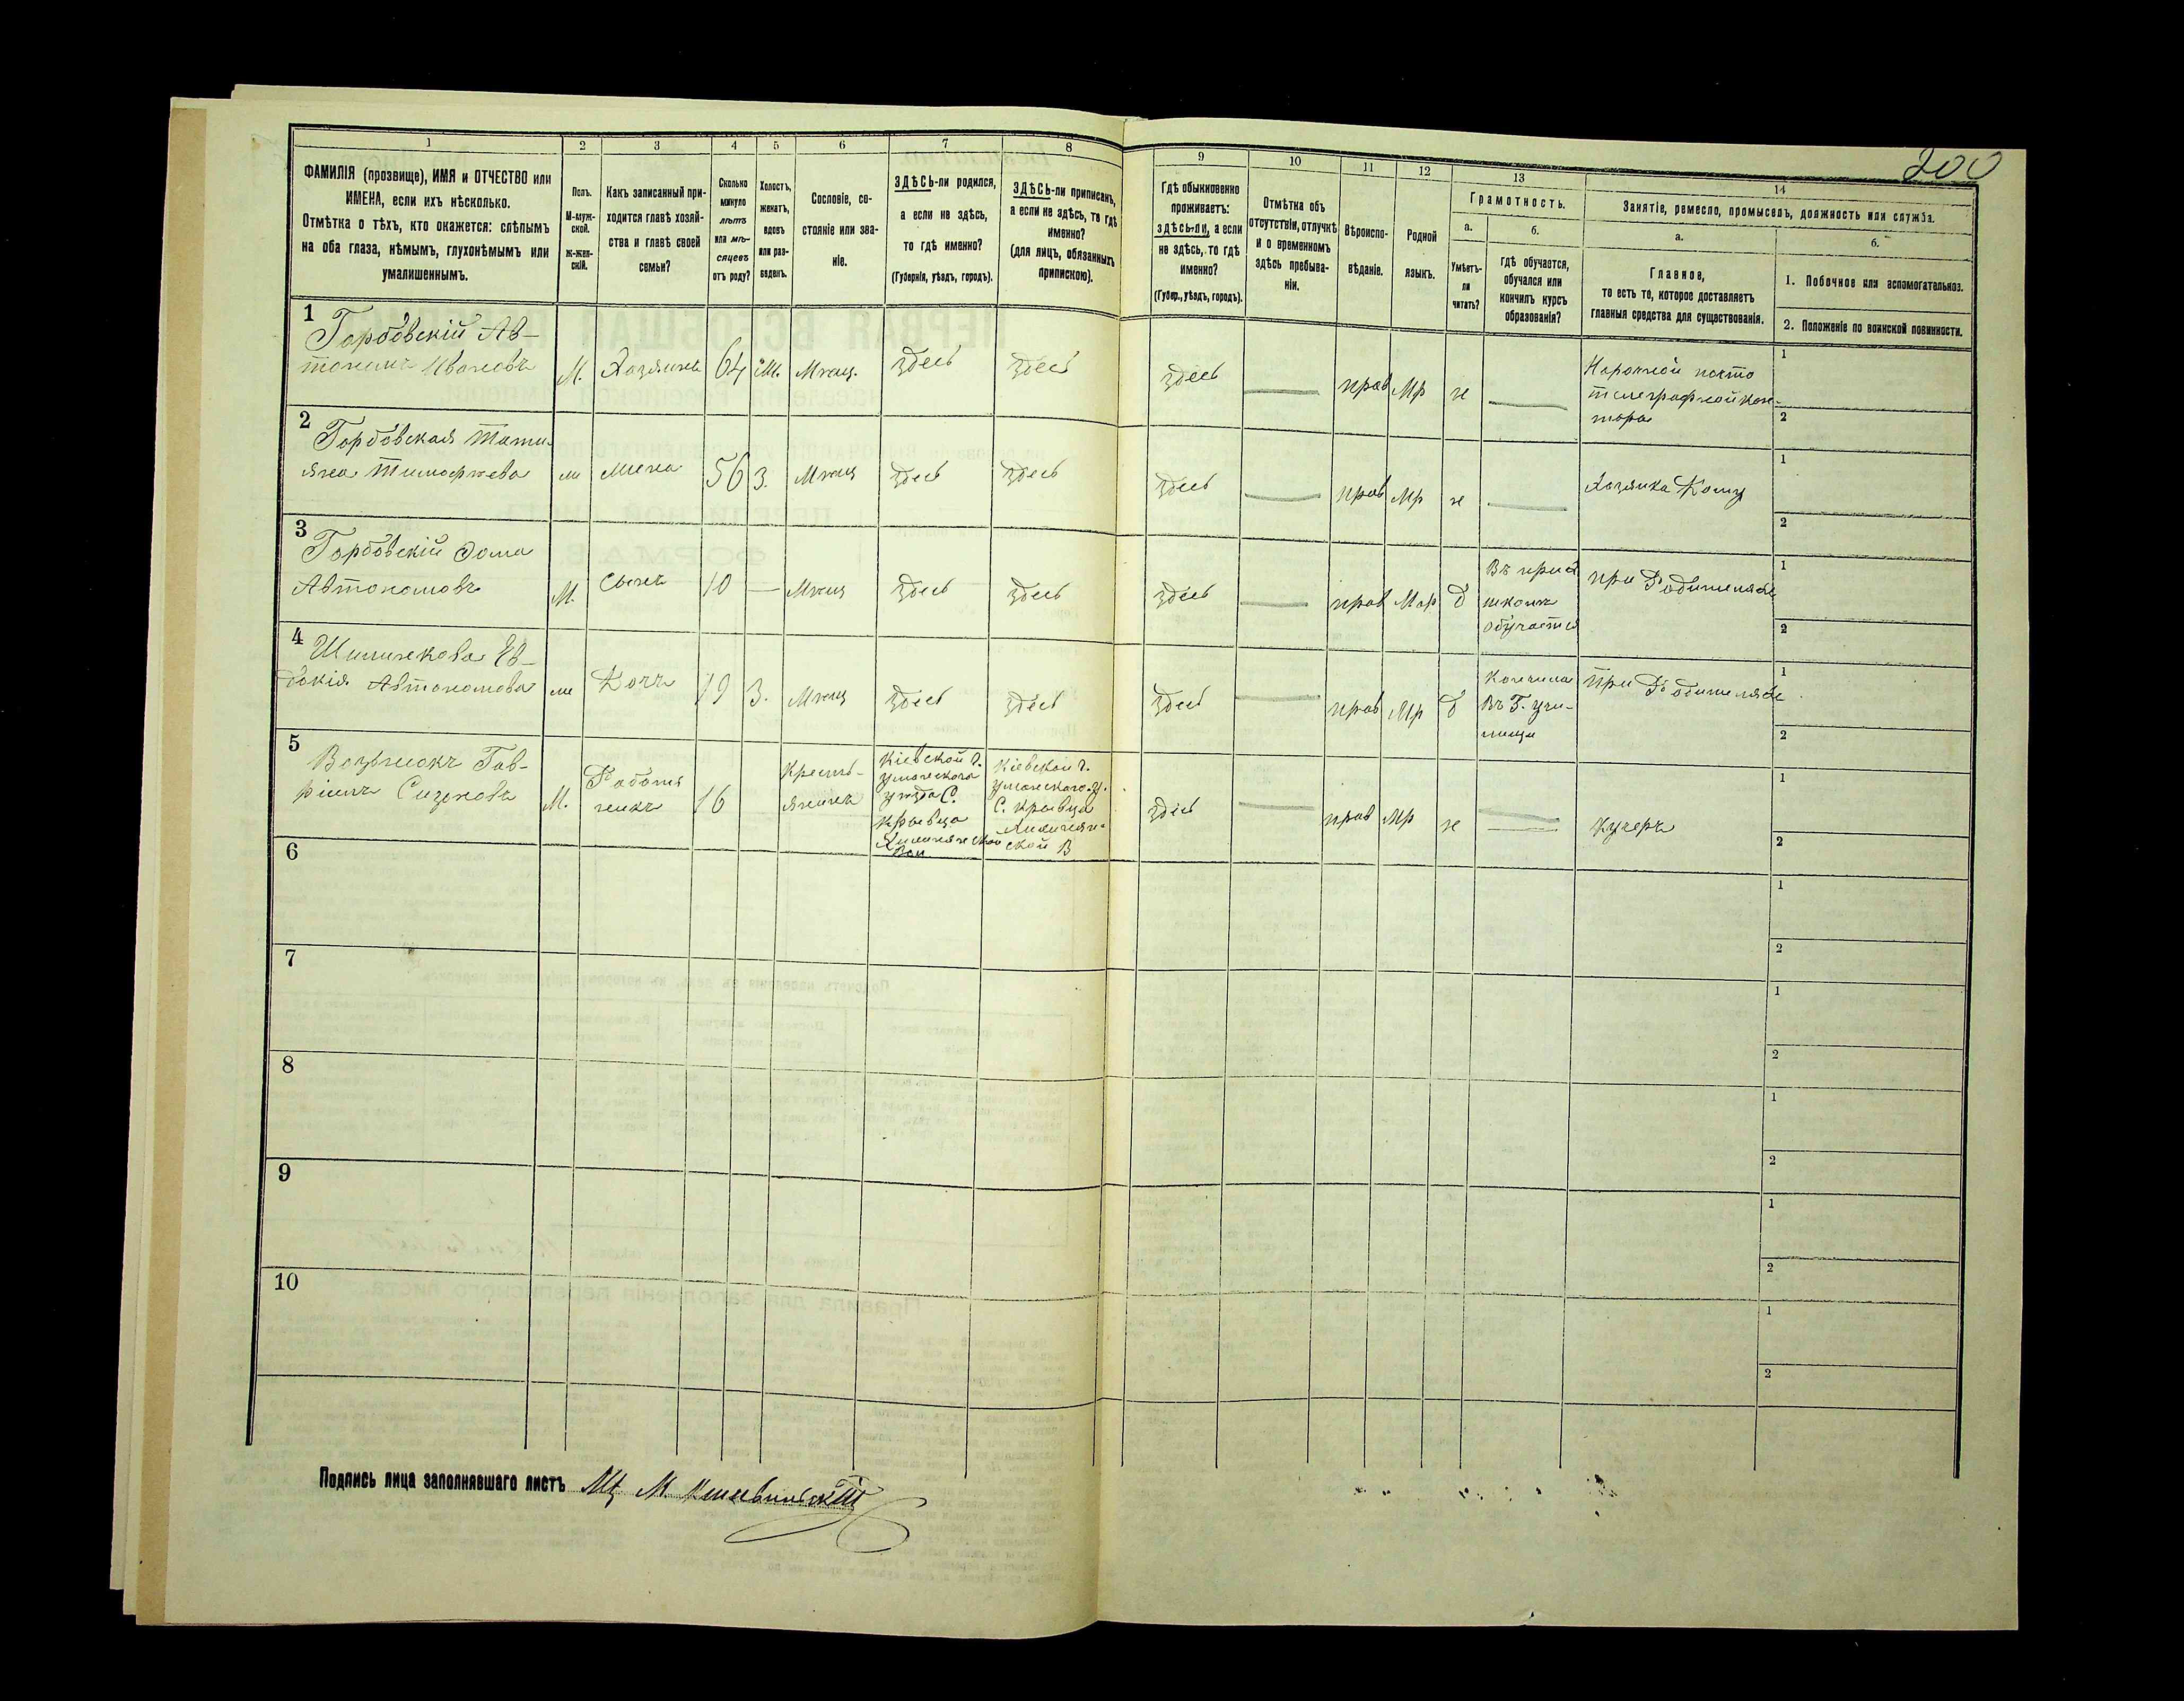 200
1
2
3
4
5
6
7
8
9
10
11
12
13
14
ФАМИЛІЯ (прозвище), ИМЯ и ОТЧЕСТВО или
ИМЕНА, если ихъ нѣсколько.
Отмѣтка о тѣхъ, кто окажется: слѣпымъ
на оба глаза, нѣмымъ, глухонѣмымъ или
умалишеннымъ.
Полъ.
М-муж-
ской.
Ж-жен-
скій.
Какъ записанный при-
ходится главѣ хозяй-
ства и главѣ своей
семьи?
Сколько
минуло
лѣтъ
или мѣ-
сяцевъ
отъ роду?
Холостъ,
женатъ,
вдовъ
или раз-
веденъ.
Сословіе, со-
стояніе или зва-
ніе.
ЗДѢСЬ-ли родился,
а если не здѣсь,
то гдѣ именно?
(Губернія, уѣздъ, городъ).
ЗДѢСЬ-ли приписанъ,
а если не здѣсь, то гдѣ
именно?
(для лицъ, обязанныхъ
припискою).
Гдѣ обыкновенно
проживаетъ:
здѣсь-ли, а если
не здѣсь, то гдѣ
именно?
(Губер., уѣздъ, городъ).
Отмѣтка объ
отсутствіи, отлучкѣ
и о временномъ
здѣсь пребыва-
ніи.
Вѣроиспо-
вѣданіе.
Родной
языкъ.
Грамотность.
а.
Умѣетъ-
ли
читать?
б.
гдѣ обучается,
обучался или
кончилъ курсъ
образованія?
Занятіе, ремесло, промыселъ, должность или служба.
а.
Главное,
то есть то, которое доставляетъ
главныя средства для существованія.
б.
1. Побочное или вспомогательное.
2. Положеніе по воинской повинности.
1
Горбовскій Ав-
тономъ Ивановъ
М.
Хазяинъ
64
Ж.
Мѣщ.
здесь
здесь
здесь
прав
Мр
н
почто
телеграфной кон-
торы
1
2
2
Горбовская Тати-
яна Тимофѣева
ж
жена
56
З.
Мѣщ
здесь
здесь
здесь
прав
Мр
н
Хазяика Дому
1
2
3
Горбовскій Фома
Автономовъ
М.
Сынъ
10
—
Мѣщ
здесь
здесь
здесь
прав
Мар
д
Въ
школѣ
обучается
при Родителяхъ
1
2
4
Ев-
докія Автономова
ж
Дочь
19
З.
Мѣщ
здесь
здесь
здесь
прав
Мр
д
Кончила
Въ Г. учи-
лищи
при Родителяхъ
1
2
5
Гав-
ріилъ
М.
Работн
никъ
16
Кресть-
янинъ
Кіевской г.
уманского
уѣзда С.
Кіевской г.
уманского у.
С.
ской В
здесь
прав
Мр
н
Кучеръ
1
2
6
1
2
7
1
2
8
1
2
9
1
2
10
1
2
Подпись лица заполнявшаго листъ